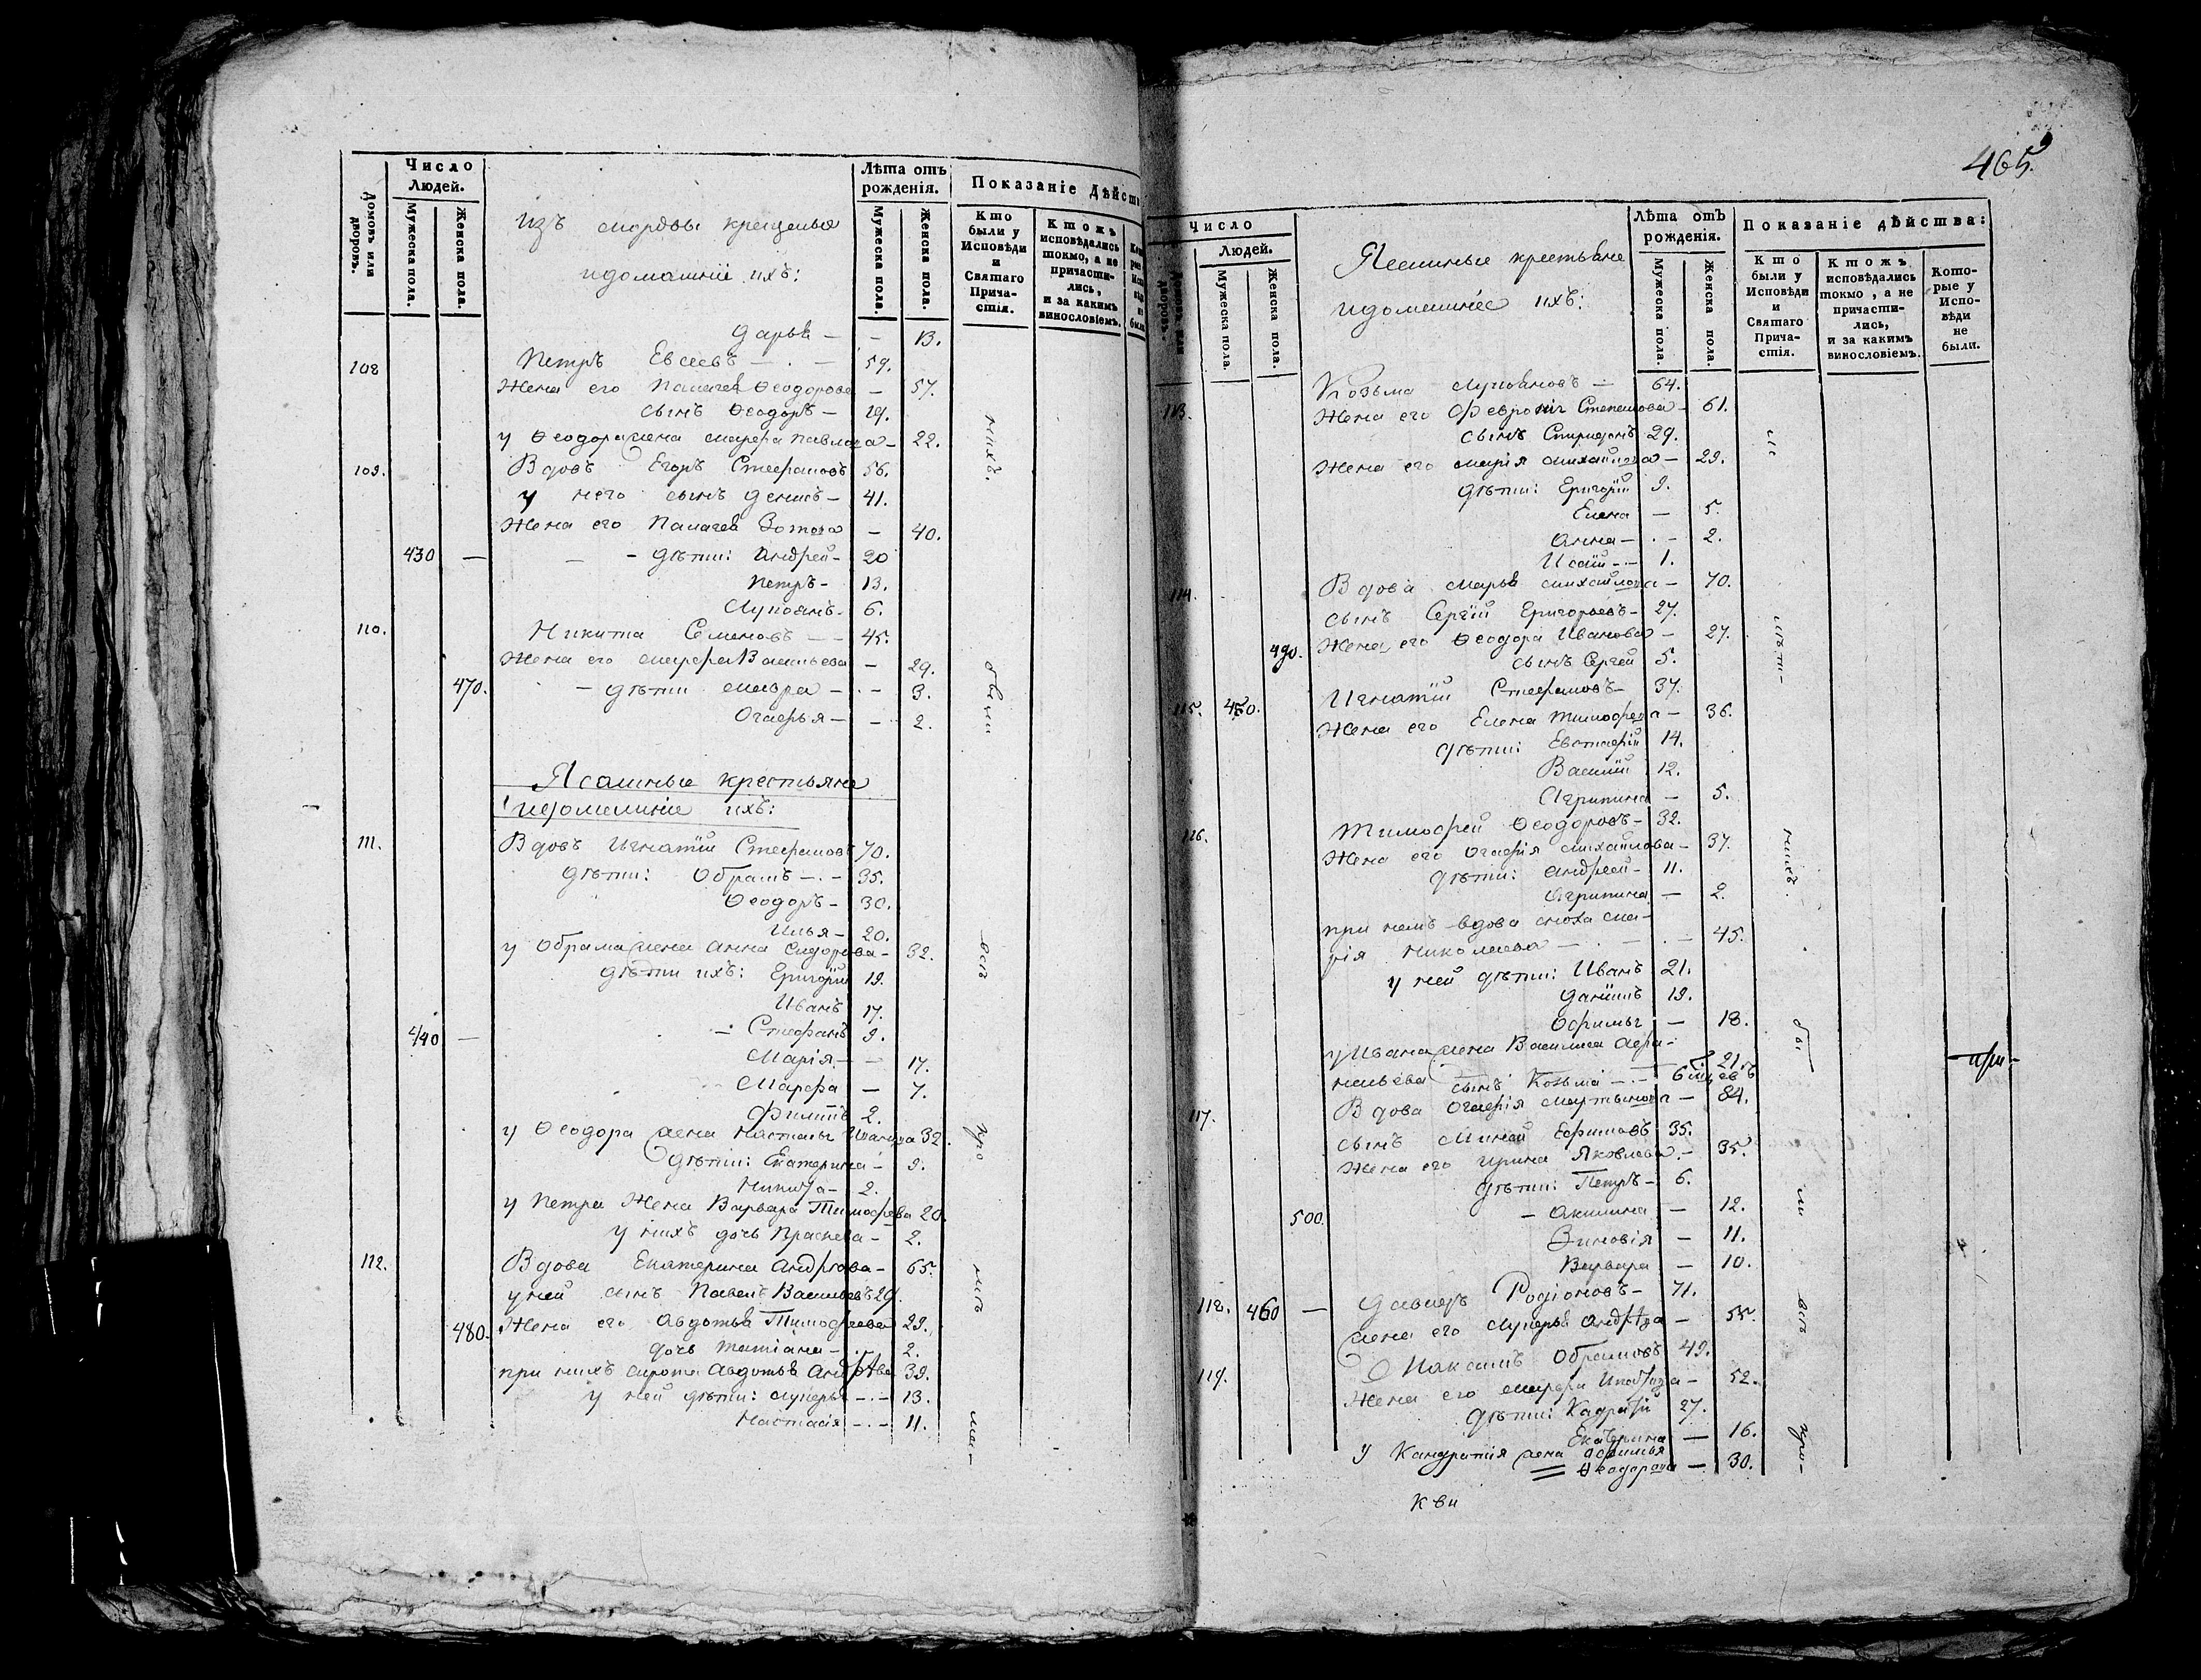 Число
Людей.
Домовъ или дворовъ.
Мужеска пола.
Женска пола.
Изъ мордвы крещеныя
идомашніе ихъ:
Лѣта отъ
рожденія.
Мужеска пола.
Женска пола.
Показаніе Дѣйст
Кто
были у
Исповѣди
и
Святаго
Прича-
стія.
Ктожъ
исповѣдались
токмо, а не
причасти-
лись,
и за какимъ
винословіемъ.
Дарья — — 13.
108 Петръ Евсеевъ — 59.
Жена его Палагея Ѳеодорова — 57.
сынъ Ѳеодоръ — 19.
у Ѳеодора жена марфа павлова — 22.
109. Вдовъ Егоръ Стефановъ 56.
у него сынъ Денисъ — 41.
Жена его Палагея Зотова — 40.
430 — дѣти: Андрей — 20
Петръ — 13.
Лукоянъ — 6.
110. Никита Семеновъ — 45.
Жена его марфа Васильева — 29.
470. — дѣти мавра — 3.
Огафья — 2.
Ясашные крестьяне
идомашніе ихъ:
111. Вдовъ Игнатій Стефановъ 70.
дѣти: Обрамъ — 35.
Ѳеодоръ — 30.
Илья — 20.
у Обрама жена Анна Сидорова — 32.
дѣти ихъ: Григорій 19.
Иванъ 17.
440 — Стефанъ 9.
Марія — 17.
Марфа — 7.
Филипъ 2.
у Ѳеодора жена Настасья Иванова 32.
дѣти: Екатерина — 9.
Никита — 2.
у Петра Жена Варвара Тимофева 20.
у нихъ дочь Прасковя — 2.
112. Вдова Екатерина Андрѣова — 65.
у ней сынъ Павелъ Васильевъ 29.
480. Жена его Авдотья Тимофеева 29.
дочь Татіана — 2.
при нихъ сирота Авдотья Андрѣва 39.
у ней дѣти: Лукерья — 13.
Настасія — 11.
нихъ.
овсми
всѣ
про
мѣ
465.
Число
Людей.
Домовъ или дворовъ.
Мужеска пола.
Женска пола.
Ясашные крестьяне
идомашніе ихъ:
Лѣта отъ
рожденія.
Мужеска пола.
Женска пола.
Показаніе дѣйства:
Кто
были у
Исповѣди
и
Святаго
Прича-
стія.
Ктожъ
исповѣдались
токмо, а не
причасти-
лись,
и за какимъ
винословіемъ.
Кото-
рые у
Испо-
вѣди
не
были.
113. Козьма Лукояновъ — 64.
Жена его Феврония Степанова — 61.
сынъ Спиридонъ 29.
Жена его марія михайлова — 29.
дѣти: Григорій 9.
Елена — 5.
Анна — 2.
Исай — 1.
114. Вдова марья михайлова — 70.
сынъ Сергій Григорьевъ — 27.
490. Жена его Ѳеодора Иванова — 27.
сынъ Сергей 5.
115. 450. Игнатій Стефановъ — 37.
Жена его Елена Тимофева — 36.
дѣти: Евстафій 14.
Василій 12.
Агрипина — 5.
116. Тимофей Ѳеодоровъ — 32.
Жена его Огафія михайлова — 37.
дѣти: Андрей — 11.
Агрипина — 2.
при немъ вдова сноха ма-
рія Николаева — 45.
у ней дѣти: Иванъ 21.
Данилъ 19.
Офимья — 18.
у Ивана жена Василиса Афа-
насьева — 21.
сынъ Козьма — 6 мцевъ
117. Вдова Огафія мартынова — 84.
сынъ Минай Ефимовъ 35.
Жена его Ирина Яковлева — 35.
дѣти: Петръ — 6.
500. — Акилина — 12.
Зиновія — 11.
Варвара — 10.
118. 460 — Давыдъ Родіоновъ — 71.
жена его Лукерья Андрѣва — 55.
119. Максимъ Обрамовъ 49.
Жена его марфа — 52.
дѣти: Кадратій 27.
Екатерина — 16.
у Кандратія жена Афимья
Ѳеодорова — 30.
при-
нихъ.
бы
ли
всѣ
про-